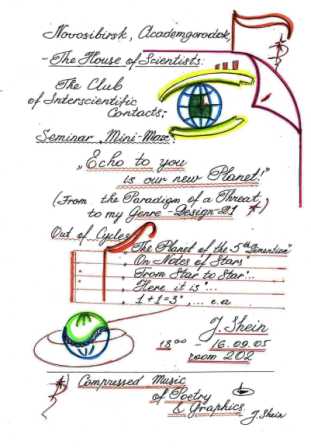 Novosibirsk, Academgorodok,
- The House of Scientists:
The Club
of Interscientific
Contacts:
Seminar „Mini-Max":
„Echo to you
is our new Planet!"
(From the Paradigm of a Threat
to my Genre-Design-21 *)
Out of Cycles
„The Planet of the 5th Dimention"
„On Notes of Stars"
„From Star to Star"...
„Here it is"...
„1+1=3", ... e.a
J. Shein
18⁰⁰ - 16.09.05
room 202
*) Compressed Music
of Poetry
& Graphics
J. Shein